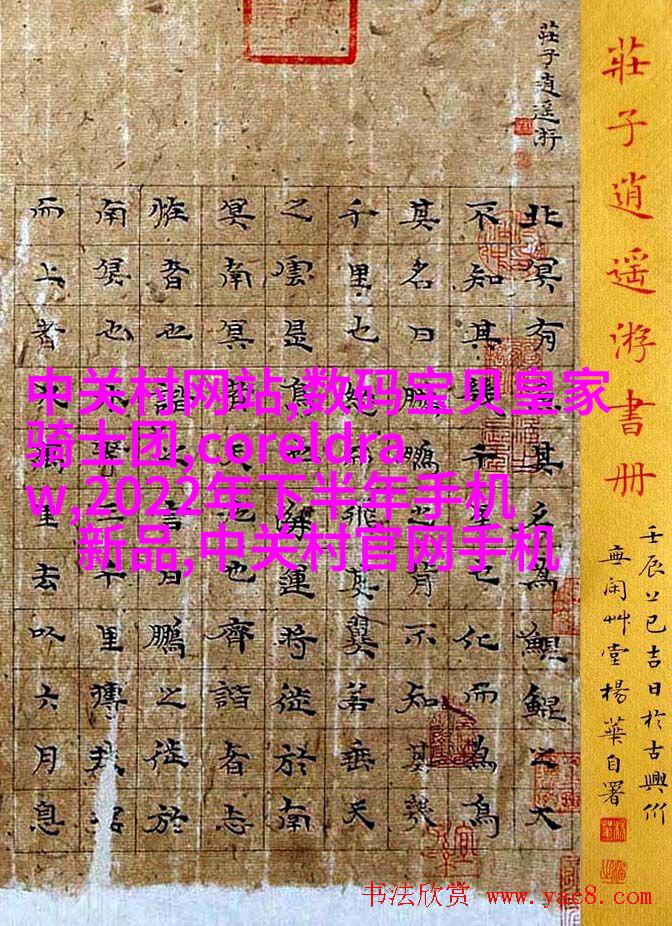 莊子逍遥游書册
壬辰上巳吉日於古興
無閑艸堂楊華自署
莊子逍遥游
北冥有魚其名為鯤鯤之大
不知其幾千里也化而為鳥
其名曰鵬鵬之背不知其幾
千里也怒而飛其翼若垂天
之雲是鳥也海運將徙於南
冥南冥者天池也齊諧者志
怪者也諧之言曰鵬之徙於
南冥也水擊三千里摶扶摇
而上者九萬里去以六月息
中关村网站,数码宝贝皇家
骑士团,coreldra
w,2022年下半年手机
新品,中关村官网手机
书法欣赏 www.yac8.com